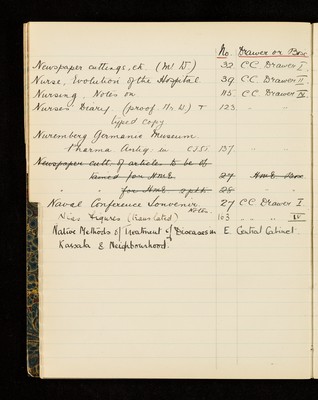 No. Drawer or Box
Newspaper cuttings, etc. (Mr W.) 32 C.C. Drawer I
Nurse, Evolution of the Hospital 39 C.C. Drawer II
Nursing, Notes on 115 C.C. Drawer IV
Nurses Diary. (proof
typed copy 123 " "
Nuremberg Germanic Museum.
Pharma. Antiq. in C151 137 " "
Newspaper cutt. of articles to be ob
tained for H.M.E. 24 H.M.E. Box
" " for H.M.E. 25 "
Naval Conference Souvenir. 27 C.C. Drawer I.
Nias Figures (translated) Notes. 163 " " " IV
Native Methods of Treatment of Diseases in E. Central Cabinet.
Kassala & Neighbourhood.